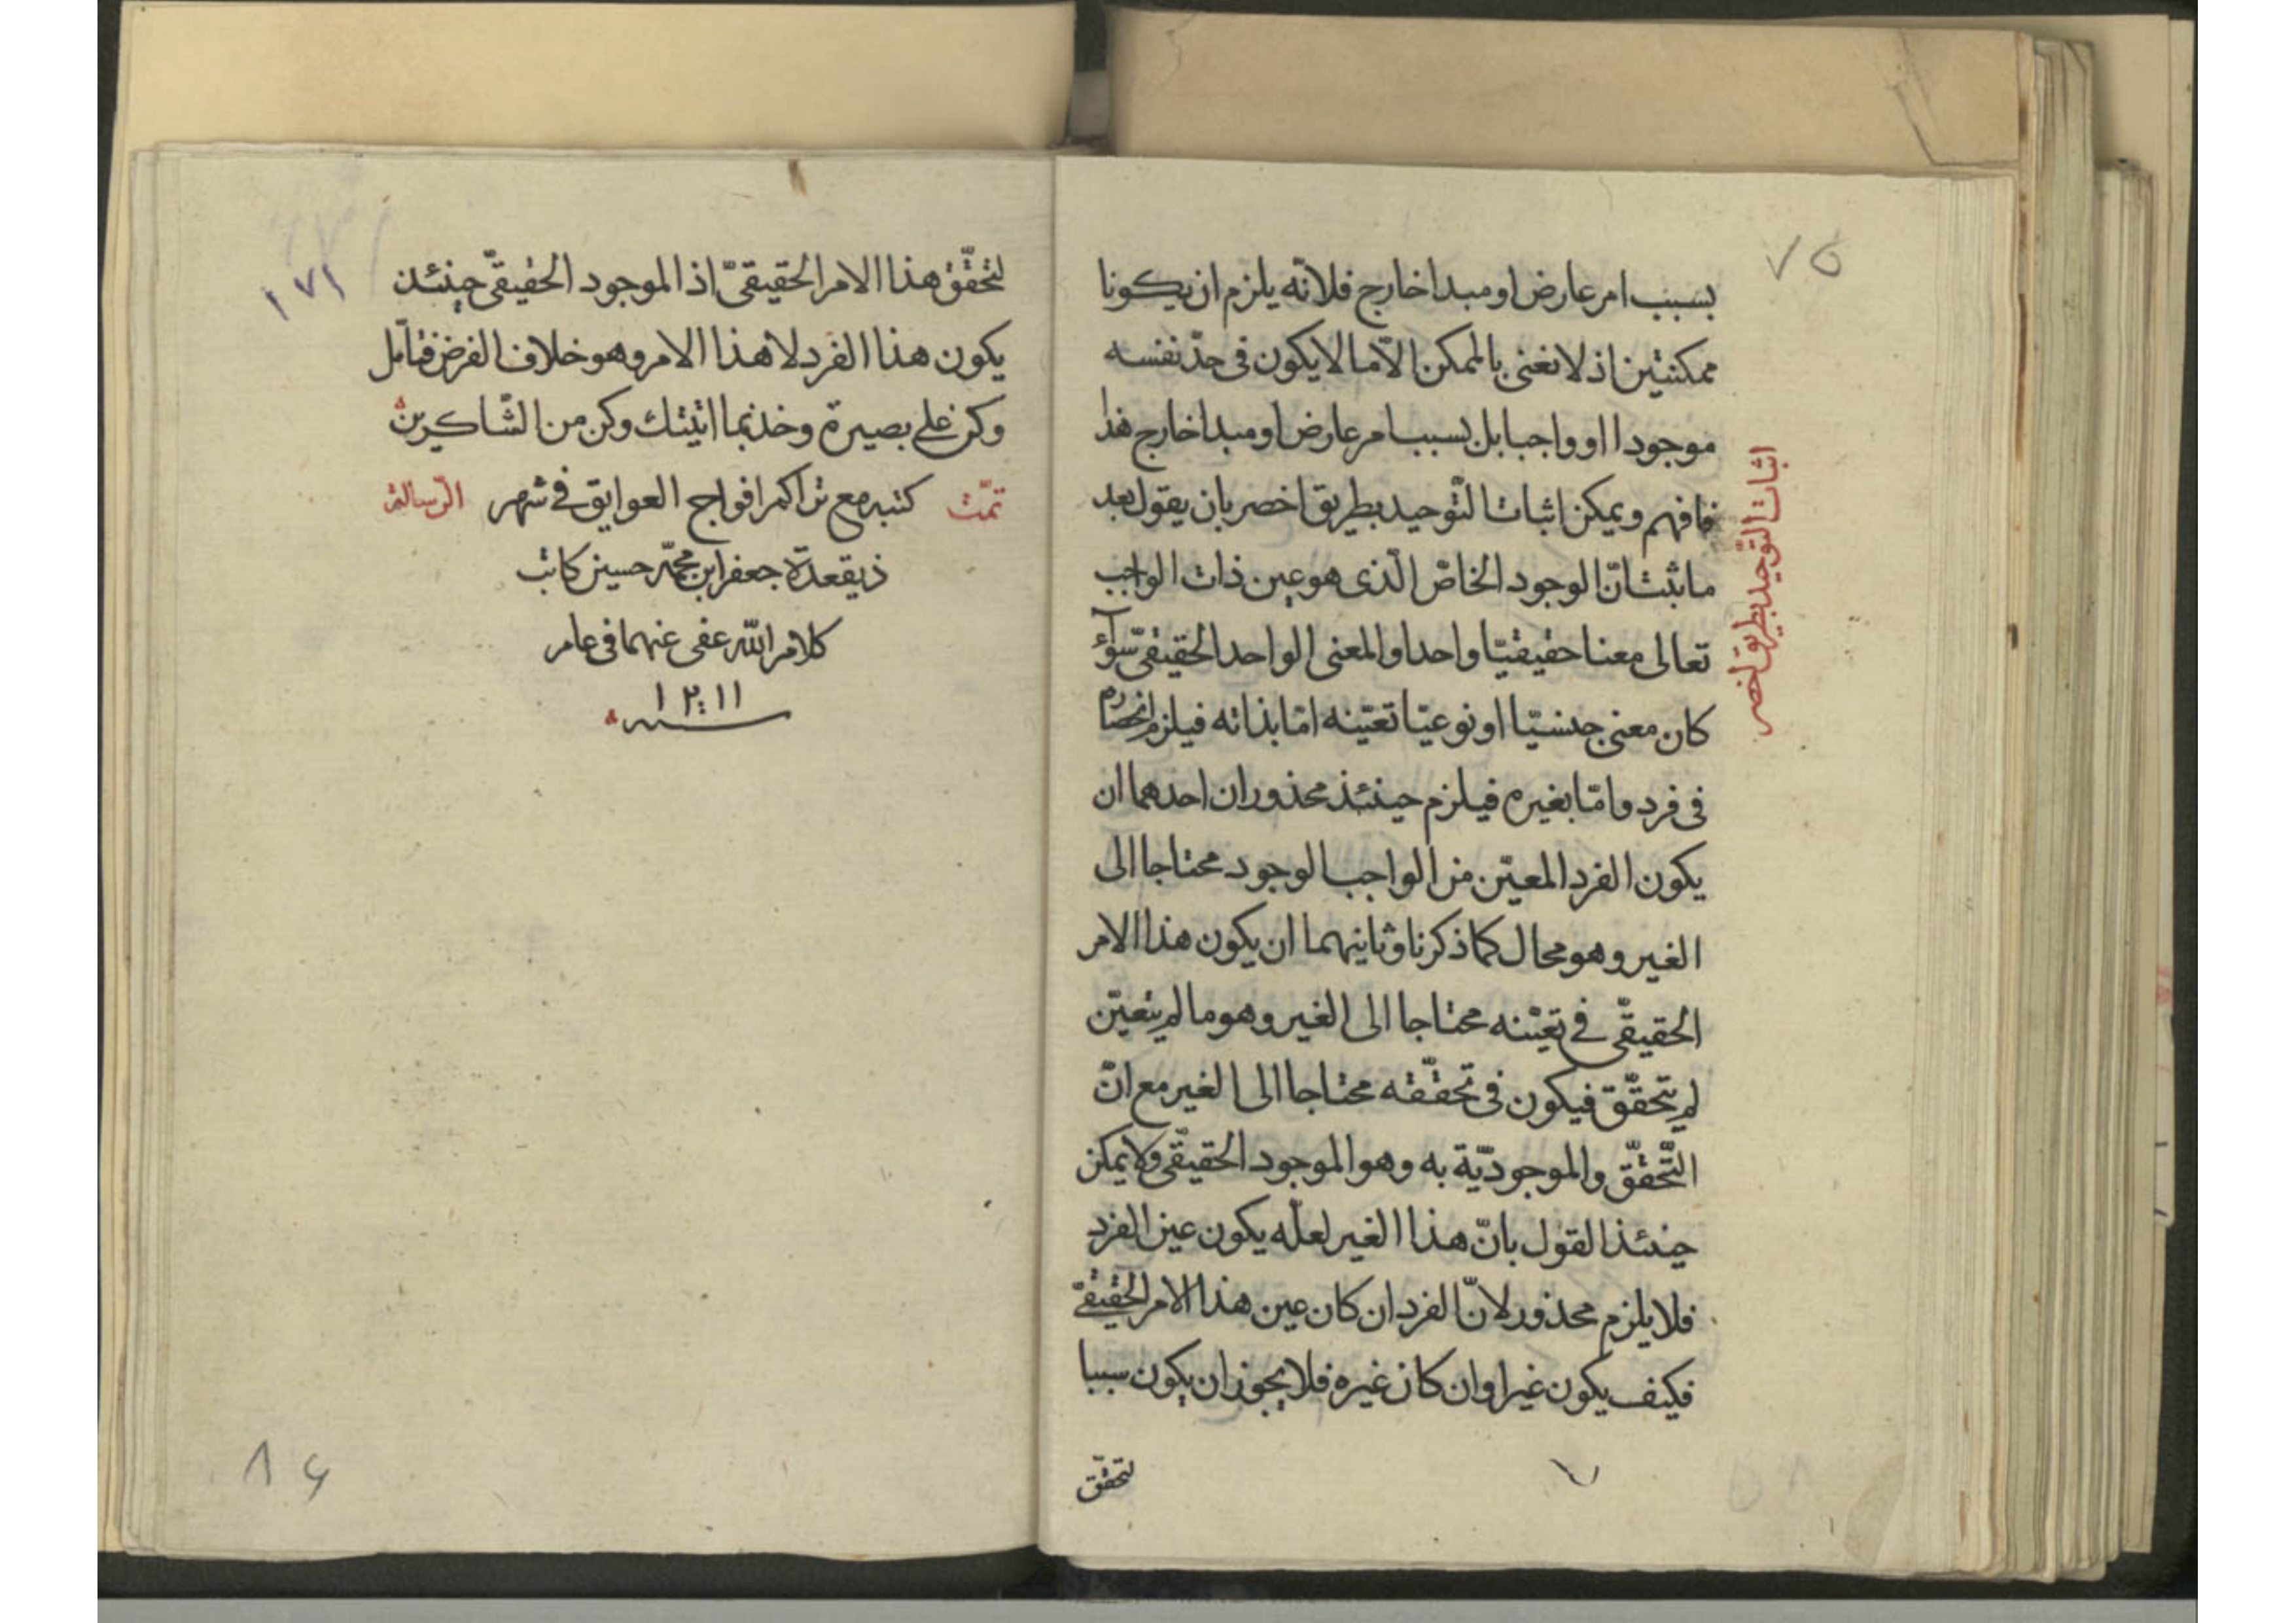 ٧٥
بسبب امر عارض او مبدا خارج فلانّه يلزم ان يكونا
ممكنتين اذ لا نغنى بالممكن الّا ما لا يكون فى حدّ نفسه
موجودا او واجبا بل بسبب امر عارض او مبدا خارج هذا
فافهم ويمكن اثبات التّوحيد بطريق اخصر بان يقول بعد
ما ثبت انّ الوجود الخاصّ الّذى هو عين ذات الواجب
تعالى معنا حقيقيّا واحدا والمعنى الواحد الحقيقىّ سوآء
كان معنى جنسيّا او نوعيّا تعيّنه امّا بذاته فيلزم انحصاره
فى فرد وامّا بغيره فيلزم حينئذ محذوران احدهما ان
يكون الفرد المعيّن من الواجب الوجود محتاجا الى
الغير وهو محال كما ذكرنا وثانيهما ان يكون هذا الامر
الحقيقّى فى تعيّنه محتاجا الى الغير وهو ما لم يتعيّن
لم يتحقّق فيكون فى تحقّقه محتاجا الى الغير مع انّ
التّحقّق والموجوديّة به وهو الموجود الحقيقّى ولا يمكن
حينئذ القول بانّ هذا الغير لعلّه يكون عين الفرد
فلا يلزم محذور لانّ الفرد ان كان عين هذا الامر الحقيقىّ
فكيف يكون غيرا وان كان غيره فلا يجوز ان يكون سببا
لتحقّق
اثبات التّوحيد بطريق اخصر
١٧١
لتحقّق هذا الامر الحقيقىّ اذ الموجود الحقيقىّ حينئذ
يكون هذا الفرد لا هذا الامر وهو خلاف الفرض فتامّل
وكن على بصيرة وخذ بما اتيتك وكن من الشّاكرين
تمّت كتبه مع تراكم افواج العوايق فى شهر الرّسالة
ذيقعدة جعفر ابن محمّد حسين كاتب
كلام اللّه عفى عنهما فى عام
١٢١١
سنه
٨٤